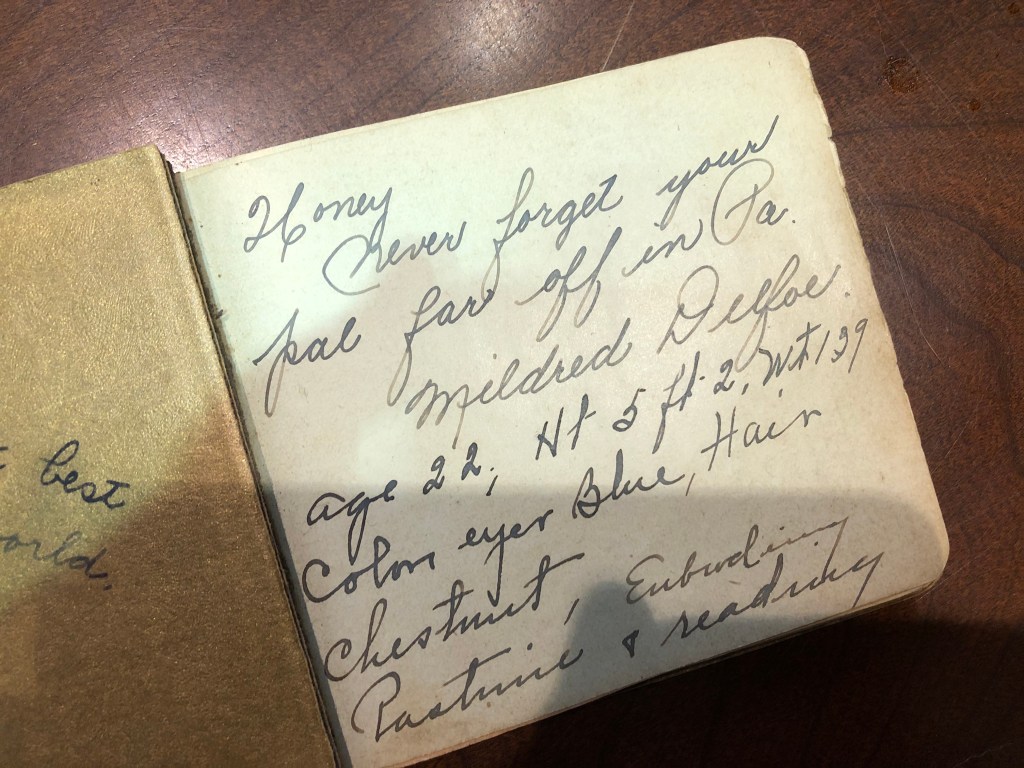 best
orld.
Honey
never forget your
pal far off in Pa.
Mildred
age 22, Ht 5 ft 2, Wt 139
Color eyes Blue, Hair
Chestnut,
Pastime & reading